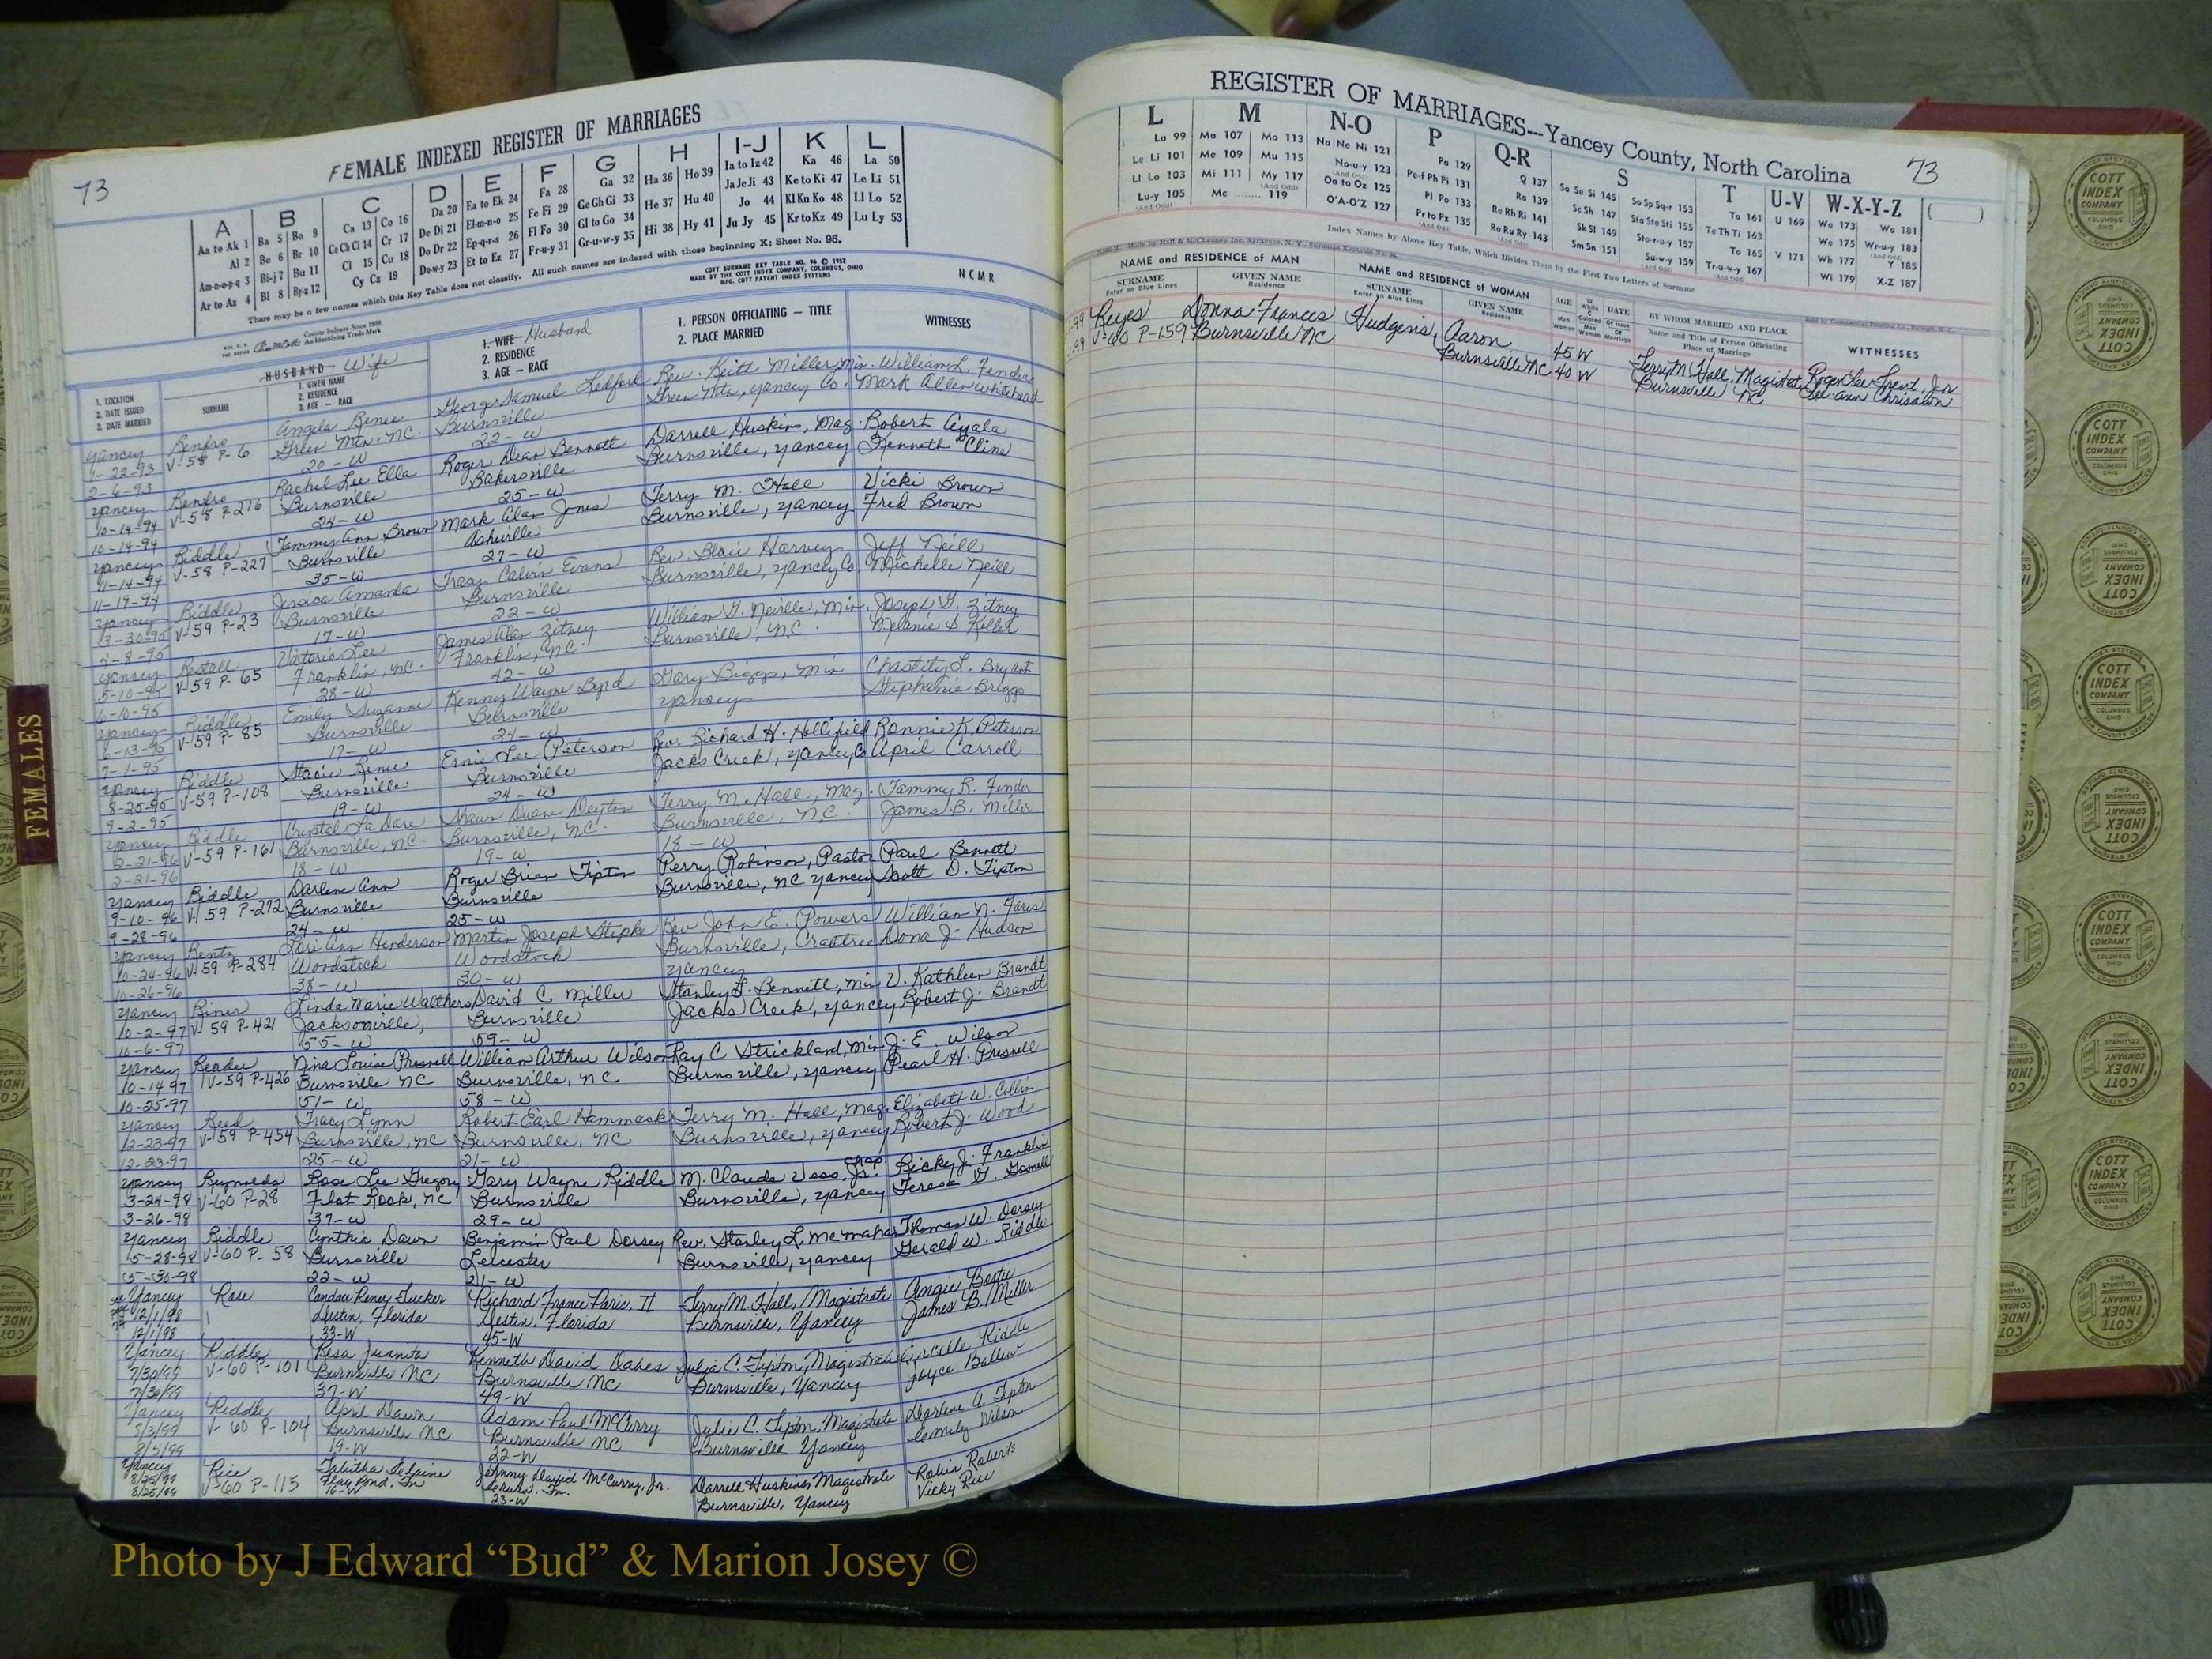 73
FEMALE INDEXED REGISTER OF MARRIAGES
A B C D E F G H I-J K L
Aa to Ak 1 Ba 5 Bo 9 Ca 13 Co 16 Da 20 Ea to Ek 24 Fa 28 Ga 32 Ha 36 Ho 39 Ia to Iz 42 Ka 46 La 50
Al 2 Be 6 Br 10 Ce Ch Ci 14 Cr 17 De Di 21 El-m-n-o 25 Fe Fi 29 Ge Gh Gi 33 He 37 Hu 40 Ja Je Ji 43 Ke to Ki 47 Le Li 51
Am-n-o-p-q 3 Bi-j 7 Bu 11 Cl 15 Cu 18 Do Dr 22 Ep-q-r-s 26 Fl Fo 30 Gl to Go 34 Hi 38 Hy 41 Jo 44 Kl Kn Ko 48 Ll Lo 52
Ar to Az 4 Bl 8 By-z 12 Cy Cz 19 Du-w-y 23 Et to Ez 27 Fr-u-y 31 Gr-u-w-y 35 Ju Jy 45 Kr to Kz 49 Lu Ly 53
There may be a few names which this Key Table does not classify. All such names are indexed with those beginning X; Sheet No. 96.
COTT SURNAME KEY TABLE NO. 96 © 1952
MADE BY THE COTT INDEX COMPANY, COLUMBUS, OHIO
MFG. COTT PATENT INDEX SYSTEMS
NCMR
County Indexes Since 1888
An Identifying Trade Mark
1. LOCATION
2. DATE ISSUED
3. DATE MARRIED
HUSBAND Wife
SURNAME
1. GIVEN NAME
2. RESIDENCE
3. AGE — RACE
1. WIFE Husband
2. RESIDENCE
3. AGE — RACE
1. PERSON OFFICIATING — TITLE
2. PLACE MARRIED
WITNESSES
Yancey Renfro Angela Renee George Samuel Ledford Rev. Keith Miller, Min. William L. Fender
1-22-93 V-58 P-6 Green Mtn. N.C. Burnsville Green Mtn, Yancey Co. Mark Allen Whitehead
2-6-93 20-W 22-W
Yancey Renfro Rachel Lee Ella Roger Dean Bennett Darrell Huskins, Mag. Robert Ayala
10-14-94 V-58 P-216 Burnsville Bakersville Burnsville, Yancey Kenneth Cline
10-14-94 24-W 25-W
Yancey Riddle Tammy Ann Brown Mark Alan Jones Terry M. Hall Vicki Brown
11-14-94 V-58 P-227 Burnsville Asheville Burnsville, Yancey Fred Brown
11-19-94 35-W 27-W
Yancey Riddle Jessica Amanda Tracy Calvin Evans Rev. Blair Harvey Jeff Neill
3-30-95 V-59 P-23 Burnsville Burnsville Burnsville, Yancey Co Michelle Neill
4-8-95 17-W 22-W
Yancey Restall Victoria Lee James Alan Zitney William G. Neville, Min. Joseph G. Zitney
5-10-95 V-59 P-65 Franklin, NC. Franklin, NC. Burnsville, N.C. Melanie S Kellet
6-10-95 28-W 42-W
Yancey Riddle Emily Suzanne Kenny Wayne Byrd Gary Biggs, Min Chastity L. Bryant
6-13-95 V-59 P-85 Burnsville Burnsville Yancey Stephanie Briggs
7-1-95 17-W 24-W
Yancey Riddle Stacie Renee Ernie Lee Peterson Rev. Richard H. Hollifield Ronnie K. Peterson
8-25-95 V-59 P-108 Burnsville Burnsville Jacks Creek, Yancey Co April Carroll
9-2-95 19-W 24-W
Yancey Riddle Crystal La Dare Shawn Duane Deyton Terry M. Hall, Mag. Tammy R. Fender
2-21-96 V-59 P-161 Burnsville, NC. Burnsville, NC. Burnsville, NC. James B. Miller
2-21-96 18-W 19-W 18-W
Yancey Riddle Darlene Ann Roger Brian Tipton Perry Robinson, Pastor Paul Bennett
9-10-96 V-59 P-272 Burnsville Burnsville Burnsville, NC Yancey Scott D. Tipton
9-28-96 24-W 25-W
Yancey Rentz Lori Ann Henderson Martin Joseph Stipke Rev. John E. Powers William N. Faris
10-24-96 V-59 P-284 Woodstock Woodstock Burnsville, Crabtree Dona J. Hudson
10-26-96 38-W 30-W Yancey
Yancey Riner Linda Marie Walthers David C. Miller Stanley L. Bennett, Min V. Kathleen Brandt
10-2-97 V-59 P-421 Jacksonville, Burnsville Jacks Creek, Yancey Robert J. Brandt
10-6-97 55-W 59-W
Yancey Reader Nina Louise Presnell William Arthur Wilson Ray C Strickland, Min J. E. Wilson
10-14-97 V-59 P-426 Burnsville NC Burnsville, NC Burnsville, Yancey Pearl H. Presnell
10-25-97 51-W 58-W
Yancey Reed Tracy Lynn Robert Earl Hammack Terry M. Hall, Mag. Elizabeth W. Collin
12-23-97 V-59 P-454 Burnsville, NC Burnsville, NC Burnsville, Yancey Robert J. Wood
12-23-97 25-W 21-W
Yancey Reynolds Rose Lee Gregory Gary Wayne Riddle M. Claude Vess, Jr. Chap. Ricky J. Franklin
3-24-98 V-60 P-28 Flat Rock, NC Burnsville Burnsville, Yancey Teresa G. Gosnell
3-26-98 37-W 29-W
Yancey Riddle Cynthia Dawn Benjamin Paul Dorsey Rev. Stanley L. McMahan Thomas W. Dorsey
5-28-98 V-60 P-58 Burnsville Leicester Burnsville, Yancey Gerald W. Riddle
5-30-98 22-W 21-W
Yancey Rose Candace Reney Tucker Richard France Paris, II Terry M. Hall, Magistrate Angie
12/1/98 Destin, Florida Destin, Florida Burnsville, Yancey James B. Miller
12/1/98 33-W 45-W
Yancey Riddle Resa Juanita Kenneth David Oakes Julia C. Tipton, Magistrate Arcille Riddle
7/30/99 V-60 P-101 Burnsville NC Burnsville NC Burnsville, Yancey Joyce Ballew
7/30/99 37-W 49-W
Yancey Riddle April Dawn Adam Paul McCurry Julie C. Tipton, Magistrate Darlene A. Tipton
8/3/99 V-60 P-104 Burnsville NC Burnsville NC Burnsville Yancey Emily Wilson
8/5/99 19-W 22-W
Yancey Rice Tabitha Johnny David McCurry, Jr. Darrell Huskins Magistrate Robin Roberts
8/25/99 V-60 P-115 Flag Pond, Tn Tn. Burnsville, Yancey Vicky Rice
8/25/99 16-W 23-W
FEMALES
REGISTER OF MARRIAGES---Yancey County, North Carolina
73
L M N-O P Q-R S T U-V W-X-Y-Z
La 99 Ma 107 Mo 113 Na Ne Ni 121 Pa 129 Q 137 Sa Se Si 145 So Sp Sq-r 153 Ta 161 U 169 Wa 173 Wo 181
Le Li 101 Me 109 Mu 115 No-u-y 123 Pe-f Ph Pi 131 Ra 139 Sc Sh 147 Sta Ste Sti 155 Te Th Ti 163 V 171 We 175 Wr-u-y 183
Ll Lo 103 Mi 111 My 117 Oa to Oz 125 Pl Po 133 Re Rh Ri 141 Sk Sl 149 Sto-r-u-y 157 To 165 Wh 177 Y 185
Lu-y 105 Mc 119 O'A-O'Z 127 Pr to Pz 135 Ro Ru Ry 143 Sm Sn 151 Su-w-y 159 Tr-u-w-y 167 Wi 179 X-Z 187
Index Names by Above Key Table, Which Divides Them by the First Two Letters of Surname
NAME and RESIDENCE OF MAN
SURNAME
Enter on Blue Lines
GIVEN NAME
Residence
NAME and RESIDENCE of WOMAN
SURNAME
Enter on Blue Lines
GIVEN NAME
Residence
AGE
DATE
BY WHOM MARRIED AND PLACE
Name and Title of Person Officiating
Place of Marriage
WITNESSES
Reyes Donna Frances Hudgins, Aaron 45 W Terry M. Hall, Magistrate Roger Lee Trent, Jr
V-60 P-159 Burnsville NC Burnsville NC 40 W Burnsville NC
COTT INDEX COMPANY
COLUMBUS OHIO
Photo by J Edward “Bud” & Marion Josey ©